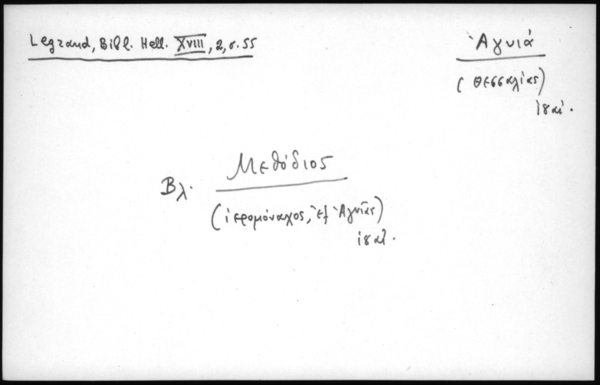 Legrand, Bibl. Hell. XVIII, 2, σ. 55
Ἁγυιά
(Θεσσαλίας)
ι8 αἰ.
Βλ. Μεθόδιος
(ἱερομόναχος, ἐξ Ἁγυιᾶς)
ι8 αἰ.